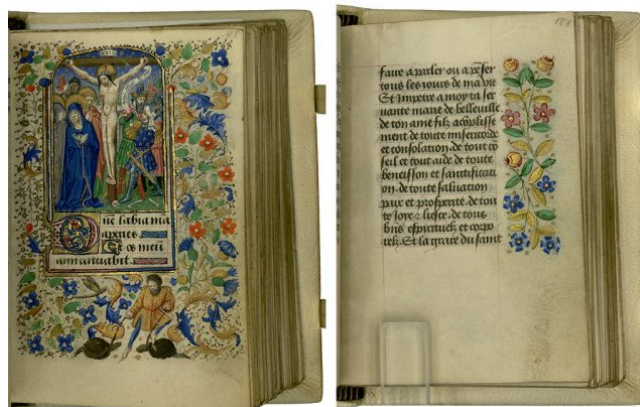 ne labia mea
aperies.
Et os meū
annūtiabit.
faire a parler ou a pēser
tous les iours de ma vie
Et impetre a moy ta ser
uante marie de belleuille
de ton ame filz acōplisse
ment de toute misericorde
et consolation de tout cō
seil et tout aide de toute
beneisson et santificati
on. de toute saluation
paix et prosperite. de tou
te ioye & liesce. de tous
biēs espirituelz et corpo
relz. Et la grace du saint